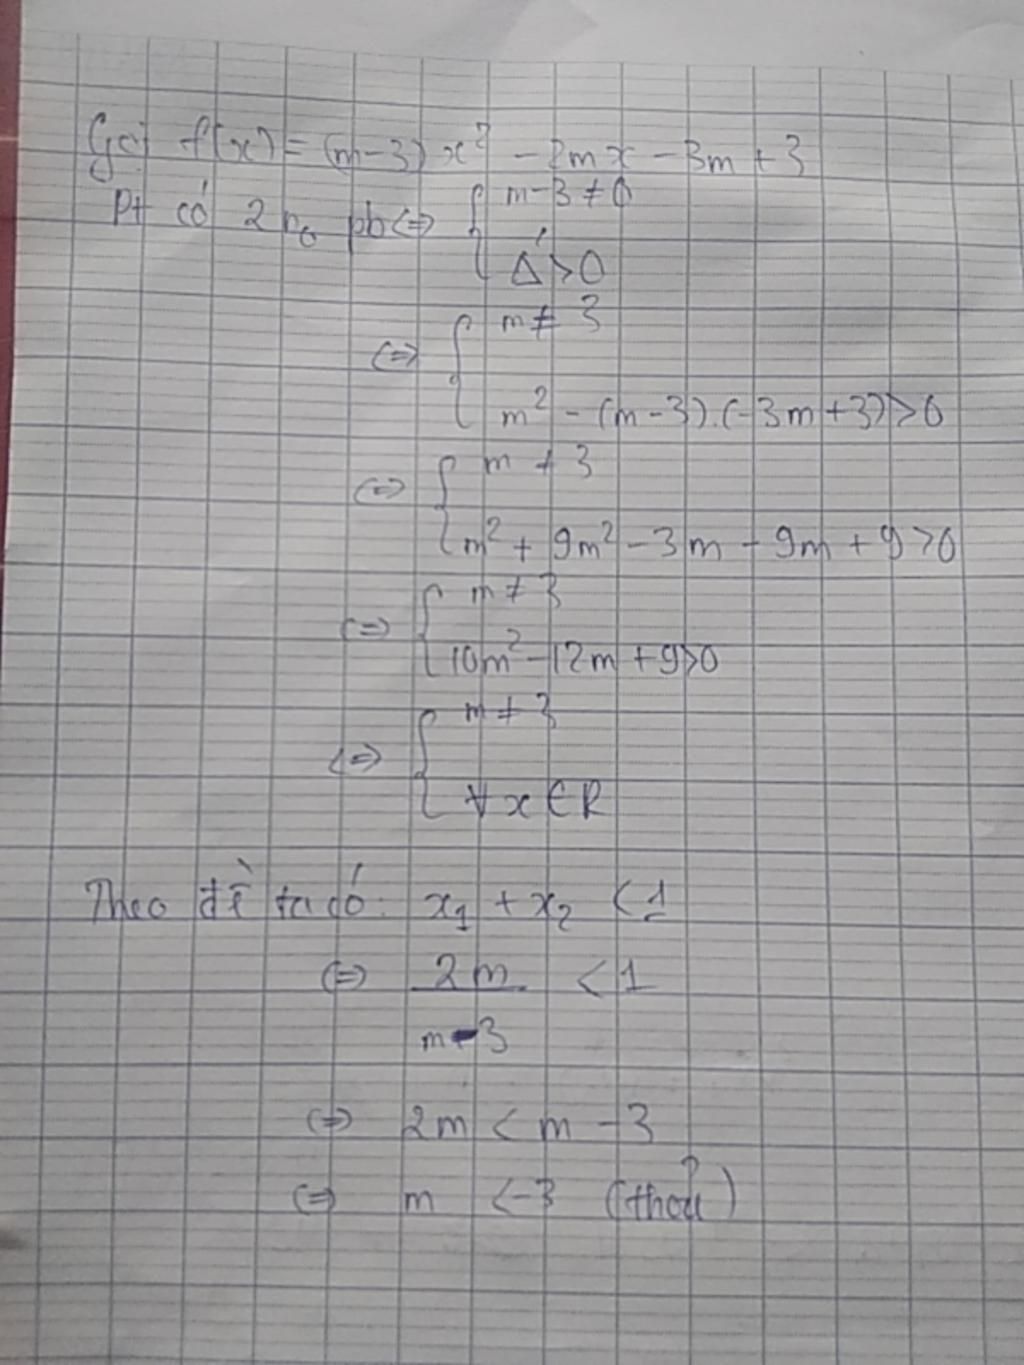 Gọi f(x) = (m-3)x² - 2mx - 3m + 3
Pt có 2 no pb <=> { m-3 ≠ 0
Δ' > 0
<=> { m ≠ 3
m² - (m-3).(-3m+3) > 0
<=> { m ≠ 3
m² + 9m² - 3m - 9m + 9 > 0
<=> { m ≠ 3
10m² - 12m + 9 > 0
<=> { m ≠ 3
∀x ∈ R
Theo đề ta có: x₁ + x₂ < 1
<=> 2m / (m-3) < 1
<=> 2m < m - 3
<=> m < -3 (thoả)